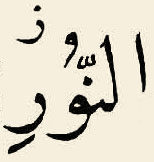 ز
النُّورِ